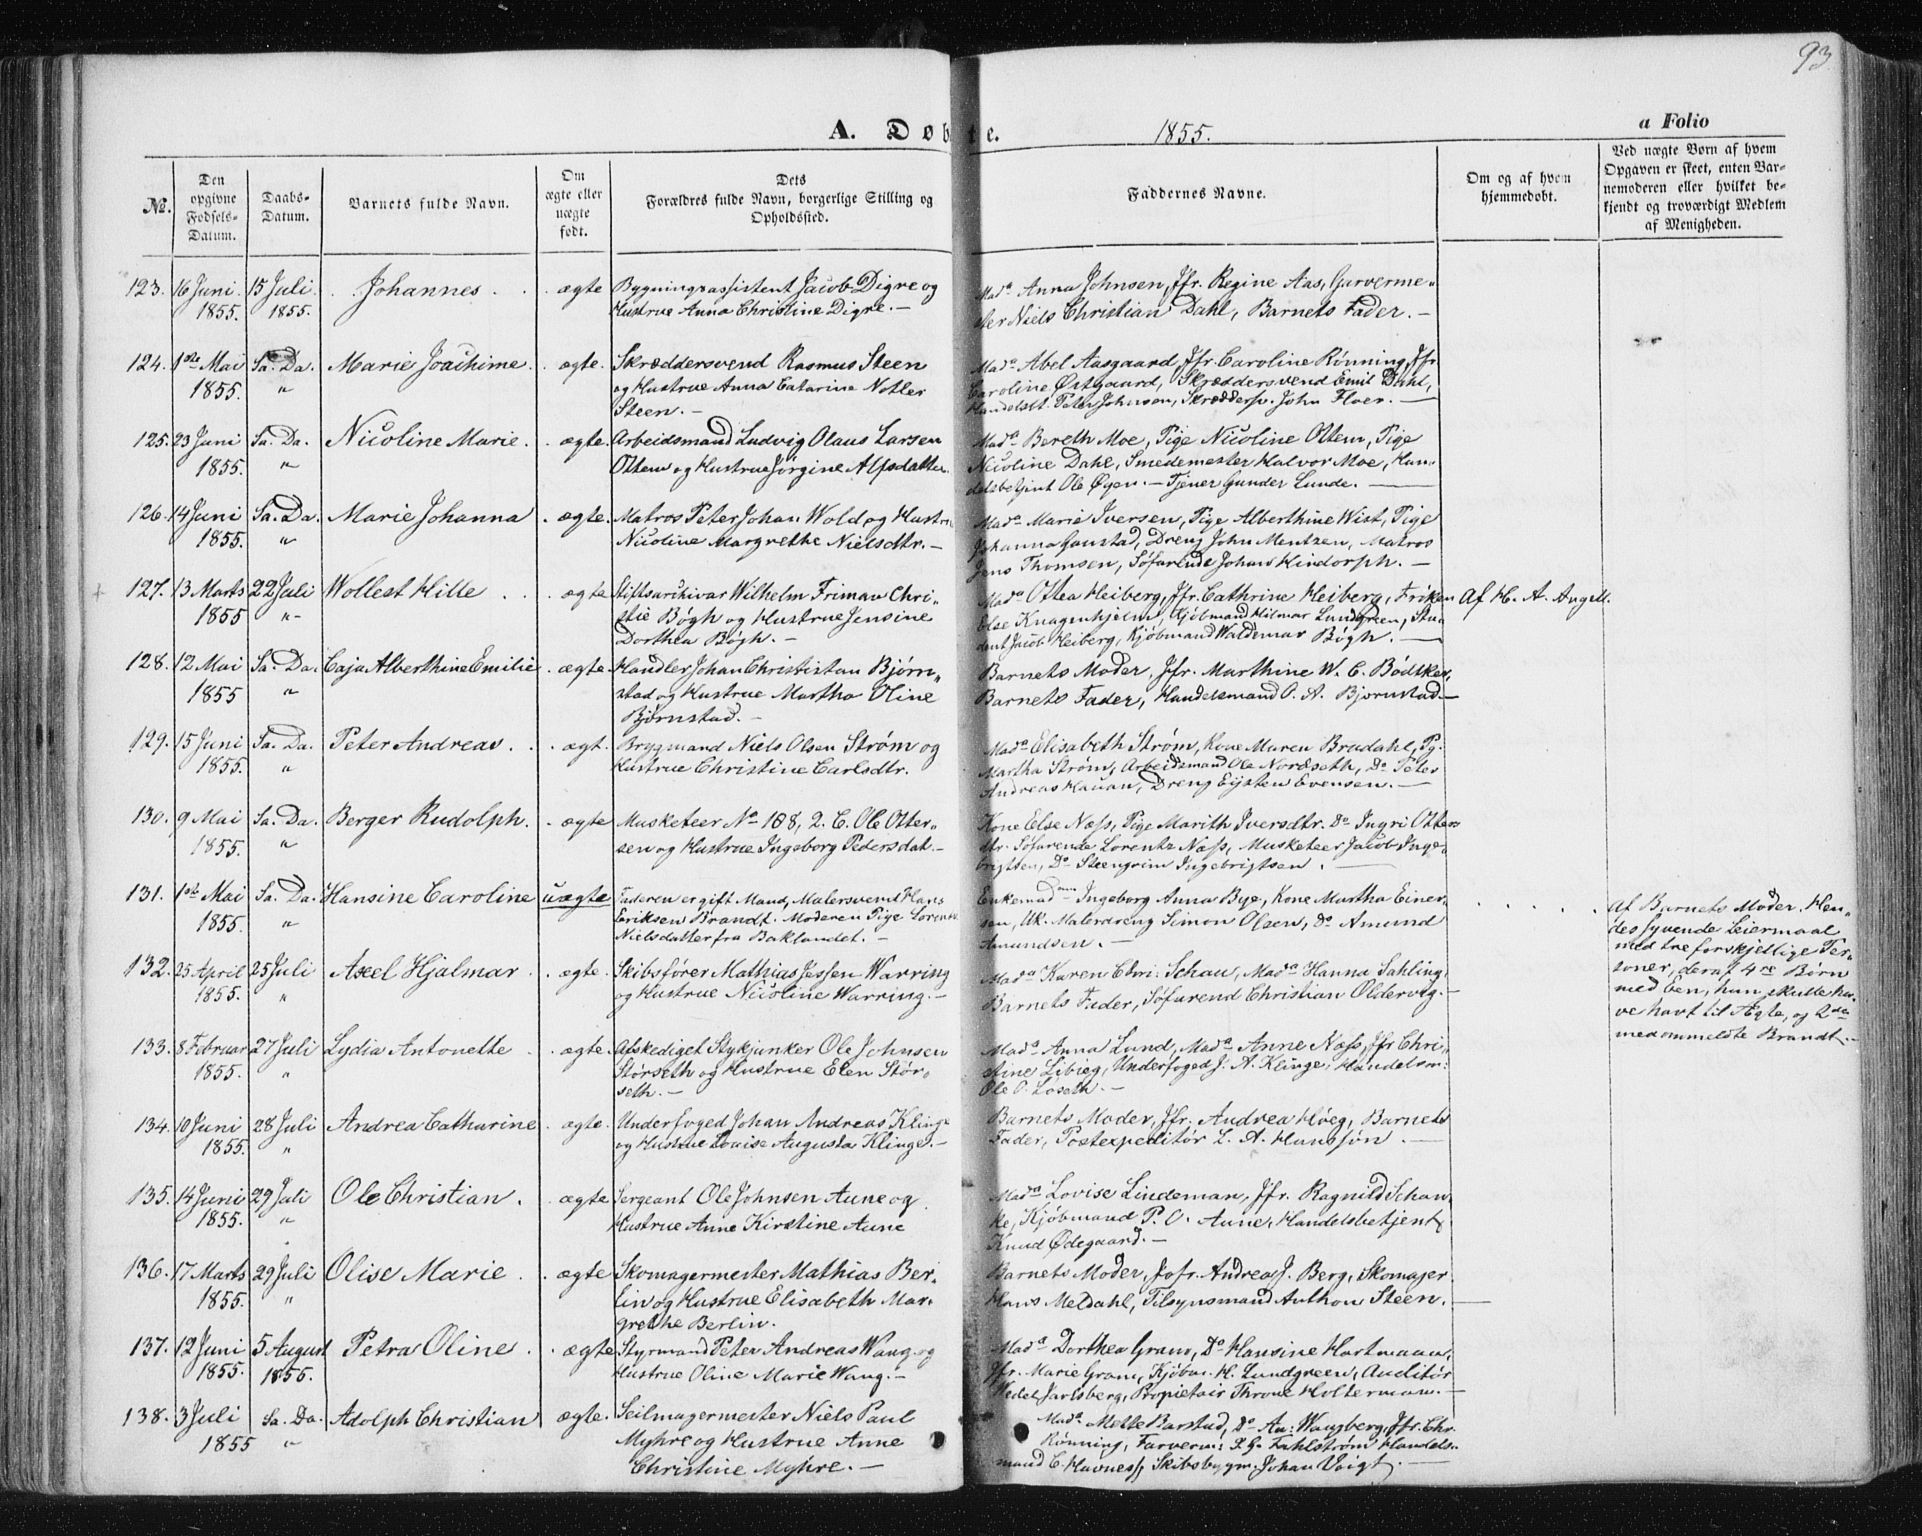 93
A. Døbte. 1855. a Folio
No.
Den opgivne Fødsels-Datum.
Daabs-Datum.
Barnets fulde Navn.
Om ægte eller uægte født.
Dets Forældres fulde Navn, borgerlige Stilling og Opholdssted.
Faddernes Navne.
Om og af hvem hjemmedøbt.
Ved uægte Børn af hvem Opgaven er skeet, enten Barnemoderen eller hvilket bekjendt og troværdigt Medlem af Menigheden.
123. 16 Juni 1855. 15 Juli 1855. Johannes ægte
Bygningsassistent Jacob Digre og
Hustrue Anna Christine Digre. –
Mada Anna Johnsen, Jfr. Regine Aas, Garverme-
ster Niels Christian Dahl, Barnets Fader. –
124. 1ste Mai 1855. Sa. Da. " Marie Joachime ægte.
Skræddersvend Rasmus Steen
og Hustrue Anna Catarina Notler
Steen. –
Mada Abel Aasgaard, Jfr. Caroline Rønning, Jfr
Caroline Østgaard, Skræddersvend Emil Dahl,
Handelsbt. Peter Johnsen, Skræddersv. John Floer. –
125. 23 Juni 1855. Sa. Da. " Nicoline Marie ægte.
Arbeidsmand Ludvig Olaus Larsen
Ottem og Hustrue Jørgine Alfsdatter.
Mada Bereth Moe, Pige Nicoline Ottem, Pige
Nicoline Dahl, Smedemester Halvor Moe, Han-
delsbetjent Ole Øyen. – Tjener Gunder Lunde. –
126. 14 Juni 1855. Sa. Da. " Marie Johanna ægte.
Matros Peter Johan Wold og Hustru
Nicoline Margrethe Nielsdtr. –
Mada Marie Iversen, Pige Alberthine Wist, Pige
Johanna Gaustad, Dreng John Mentzen, Matros
Jens Thomsen, Søfarende Johan Hindorph. –
127. 13 Marts 1855 22 Juli "- Wollest Hille ægte
Stiftsarkivar Wilhelm Friman Chri-
stie Bøgh og Hustrue Jensine
Dorthea Bøgh. –
Mada Ottea Heiberg, Jfr. Cathrine Heiberg, Frøken
Else Knagenhjelm, Kjøbmand Hilmar Lundgreen, Stu-
dent Jacob Heiberg, Kjøbmand Waldemar Bøgh. –
Af H. A. Angell.
128. 12 Mai 1855 Sa. Da. " Caja Alberthine Emilie ægte.
Handler Johan Christian Bjørn-
stad og Hustrue Martha Oline
Bjørnstad. –
Barnets Moder, Jfr. Marthine W. C. Bødtker,
Barnets Fader, Handelsmand O. A. Bjørnstad. –
129. 15 Juni 1855. Sa. Da. " Peter Andreas ægt.
Brygmand Niels Olsen Strøm og
Hustrue Christine Carlsdtr.
Mada Elisabeth Strøm, Kone Maren Brudahl, Pg.
Martha Strøm, Arbeidsmand Ole Nordseth, Do Peter
Andreas Hauan, Dreng Eysten Evensen. –
130. 9 Mai 1855. Sa. Da. " Berger Rudolph. ægte
Musketeer No 188, 2. C. Ole Otter-
sen og Hustrue Ingeborg Pedersdat. –
Kone Else Næss, Pige Marith Iversdtr. Do Ingri Otters-
dtr. Søfarende Lorentz Næss, Musketeer Jacob Inge-
brigtsen, Do Steengrim Ingebrigtsen. –
131. 1ste Mai 1855. Sa. Da. " Hansine Caroline uægte
Faderen er gift Mand, Malersvend Hans
Eriksen Brandt. Moderen Pige Lorentse
Nielsdatter fra Baklandet. –
Enkemad. Ingeborg Anna Bye, Kone Martha Einer-
sen, Uk. Malerdreng Simon Olsen, Do Amund
Amundsen. –
Af Barnets Moder. Hen-
des syvende Leiermaal
med tre forskjellige Per-
soner, deraf 4re Børn
med Een, hun skulle ha-
ve havt til Ægte, og 2de
med ommeldte Brandt. –
132. 25 April 1855. 25 Juli " Axel Hjalmar ægte.
Skibsfører Mathias Jessen Warring
og Hustrue Nicoline Warring. –
Mada Karen Chri: Schau, Mada Hanna Sahling,
Barnets Fader, Søfarend Christian Oldervig. –
133. 8 Februar 1855. 27 Juli " Lydia Antonette ægte.
Afskediget Stykjunker Ole Johnsen
Størseth og Hustrue Elen Stør-
seth. –
Mada Anna Lund, Mada Anne Næss, Jfr Chri-
stine Libieg, Underfoged J. A. Klinge, Handelsm:
Ole O. Løseth. –
134. 10 Juni 1855. 28 Juli " Andrea Catharine ægte.
Underfoged Johan Andreas Klinge
og Hustrue Louise Augusta Klinge. –
Barnets Moder, Jfr. Andrea Høeg, Barnets
Fader, Postexpeditør L. A. Hansson. –
135. 14 Juni 1855. 29 Juli " Ole Christian. ægte
Sergeant Ole Johnsen Aune og
Hustrue Anne Kirstine Aune
Mada Lovise Lindeman, Jfr. Ragnild Schan-
ke, Kjøbmand P. O. Aune, Handelsbetjent
Knud Ødegaard. –
136. 17 Marts 1855. 29 Juli " Olise Marie ægte
Skomagermester Mathias Ber-
lin og Hustrue Elisabeth Mar-
grethe Berlin.
Barnets Moder, Jofr. Andrea J. Berg, Skomager
Hans Meldahl, Tilsynsmand Anthon Steen. –
137. 12 Juni 1855. 5 August 1855. Petra Oline ægte
Styrmand Peter Andreas Wang og
Hustrue Oline Marie Wang. –
Mada Dorthea Gram, Do Hansine Hartmann,
Jfr. Marie Gram, Kjøbm. H. Lundgreen, Auditør
Wedel Jarlsberg, Propietair Throne Holterman. –
138. 3 Juli 1855 Sa. Da. " Adolph Christian ægte.
Seilmagermester Niels Paul
Myhre og Hustrue Anne
Christine Myhre. –
Mada Mette Barstad, Do An: Wangberg, Jfr. Chr.
Rønning, Farverm: P. G. Fahlstrøm Handels-
mand C. Havness, Skibsbygm. Johan Voigt. –